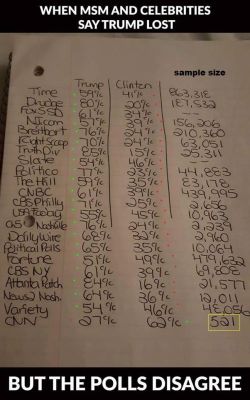 WHEN MSM AND CELEBRITIES
SAY TRUMP LOST
Trump Clinton sample size
Time 59% 41% 863,318
Drudge 80% 20% 187,532
Fox5SD 61% 39% --
Nj.com 57% 156,206
Breitbart 76% 24% 210,360
RightScoop 70% 24% 63,051
TruthDiv 85% 15% 25,311
Slate 54% 46% --
Politico 77% 23% 44,883
The Hill 59% 35% 83,178
CNBC 61% 39%
CBS Philly 71% 25% 42,656
USA Today 55% 45% 10,963
CBS Nashville 76% 24% 2,239
Daily Wire 68% 32% 2,960
Political Polls 65% 35% 10,084
Fortune 51% 49% 479,632
CBS NY 61% 39% 69,808
Atlanta Patch 84% 16% 21,577
News2 Nash. 64% 36% 12,011
Variety 54% 46% 48,056
CNN 27% 62% 521
BUT THE POLLS DISAGREE